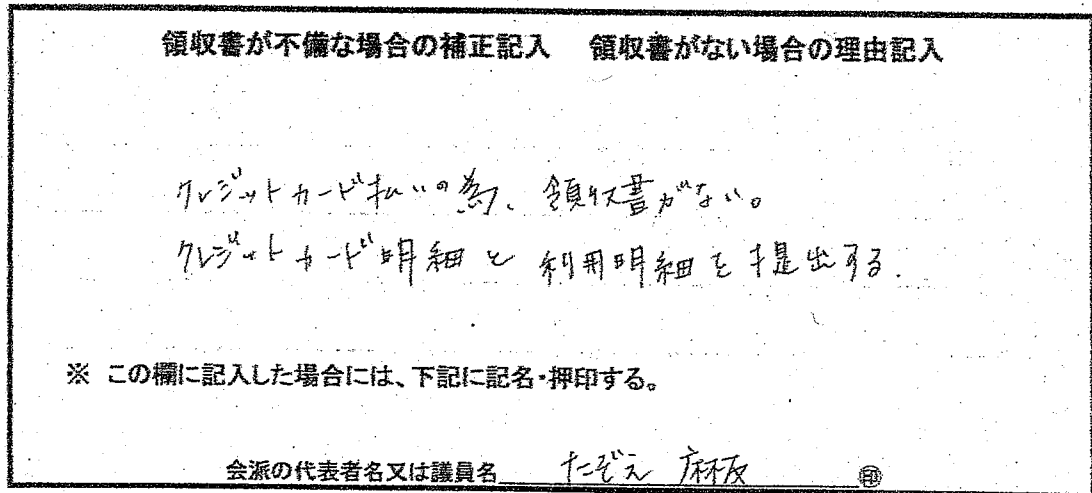 領収書が不備な場合の補正記入　領収書がない場合の理由記入
クレジットカード払いの為、領収書がない。
クレジットカード明細と利用明細を提出する.
※ この欄に記入した場合には、下記に記名・押印する。
会派の代表者名又は議員名 たぞえ 麻友 ㊞